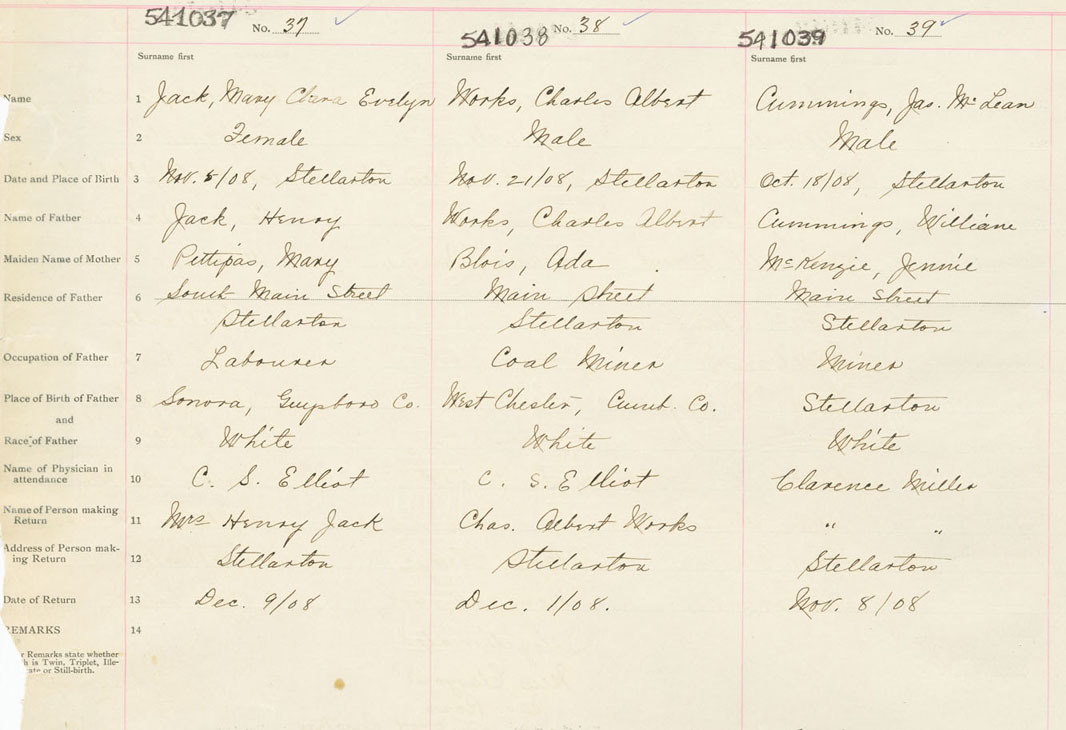 541037 No. 37 541038 No. 38 541039 No. 39
Surname first Surname first Surname first
Name 1 Jack, Mary Clara Evelyn Works, Charles Albert Cummings, Jas. McLean
Sex 2 Female Male Male
Date and Place of Birth 3 Nov. 5/08, Stellarton Nov. 21/08, Stellarton Oct. 18/08, Stellarton
Name of Father 4 Jack, Henry Works, Charles Albert Cummings, William
Maiden Name of Mother 5 Pettipas, Mary Blois, Ada McKenzie, Jennie
Residence of Father 6 South Main Street Main Street Main Street
Stellarton Stellarton Stellarton
Occupation of Father 7 Labourer Coal Miner Miner
Place of Birth of Father 8 Sonora, Guysboro Co. West Chester, Cumb. Co. Stellarton
and
Race of Father 9 White White White
Name of Physician in
attendance 10 C. S. Elliot C. S. Elliot Clarence Miller
Name of Person making
Return 11 Mrs Henry Jack Chas. Albert Works " "
Address of Person mak-
ing Return 12 Stellarton Stellarton Stellarton
Date of Return 13 Dec. 9/08 Dec. 1/08. Nov. 8/08
REMARKS 14
r Remarks state whether
h is Twin, Triplet, Ille-
ate or Still-birth.